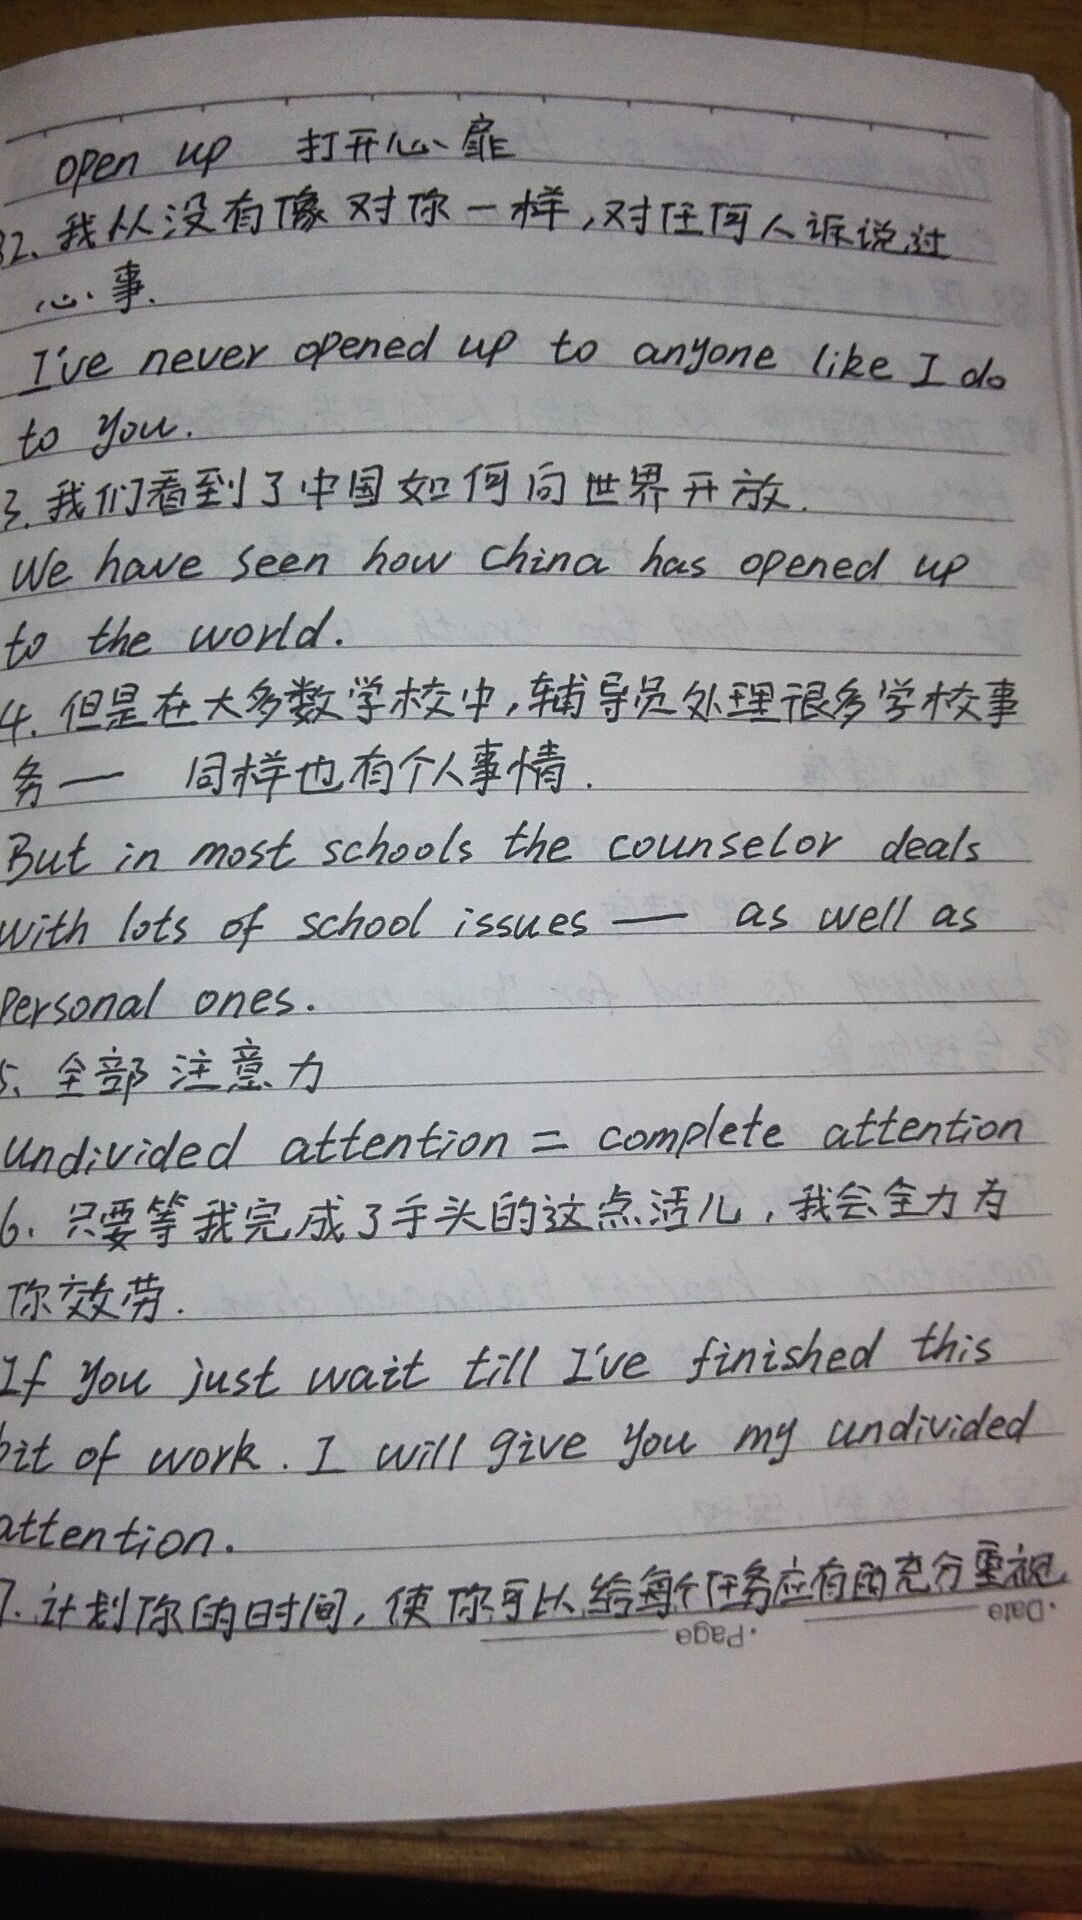 open up 打开心扉
82. 我从没有像对你一样,对任何人诉说过
心事.
I've never opened up to anyone like I do
to you.
3. 我们看到了中国如何向世界开放.
We have seen how China has opened up
to the world.
4. 但是在大多数学校中,辅导员处理很多学校事
务— 同样也有个人事情.
But in most schools the counselor deals
with lots of school issues — as well as
personal ones.
5、全部注意力
undivided attention = complete attention
6. 只要等我完成了手头的这点活儿,我会全力为
你效劳.
If you just wait till I've finished this
bit of work. I will give you my undivided
attention.
7. 计划你的时间,使你可以给每个任务应有的充分重视.
Page.
Date.